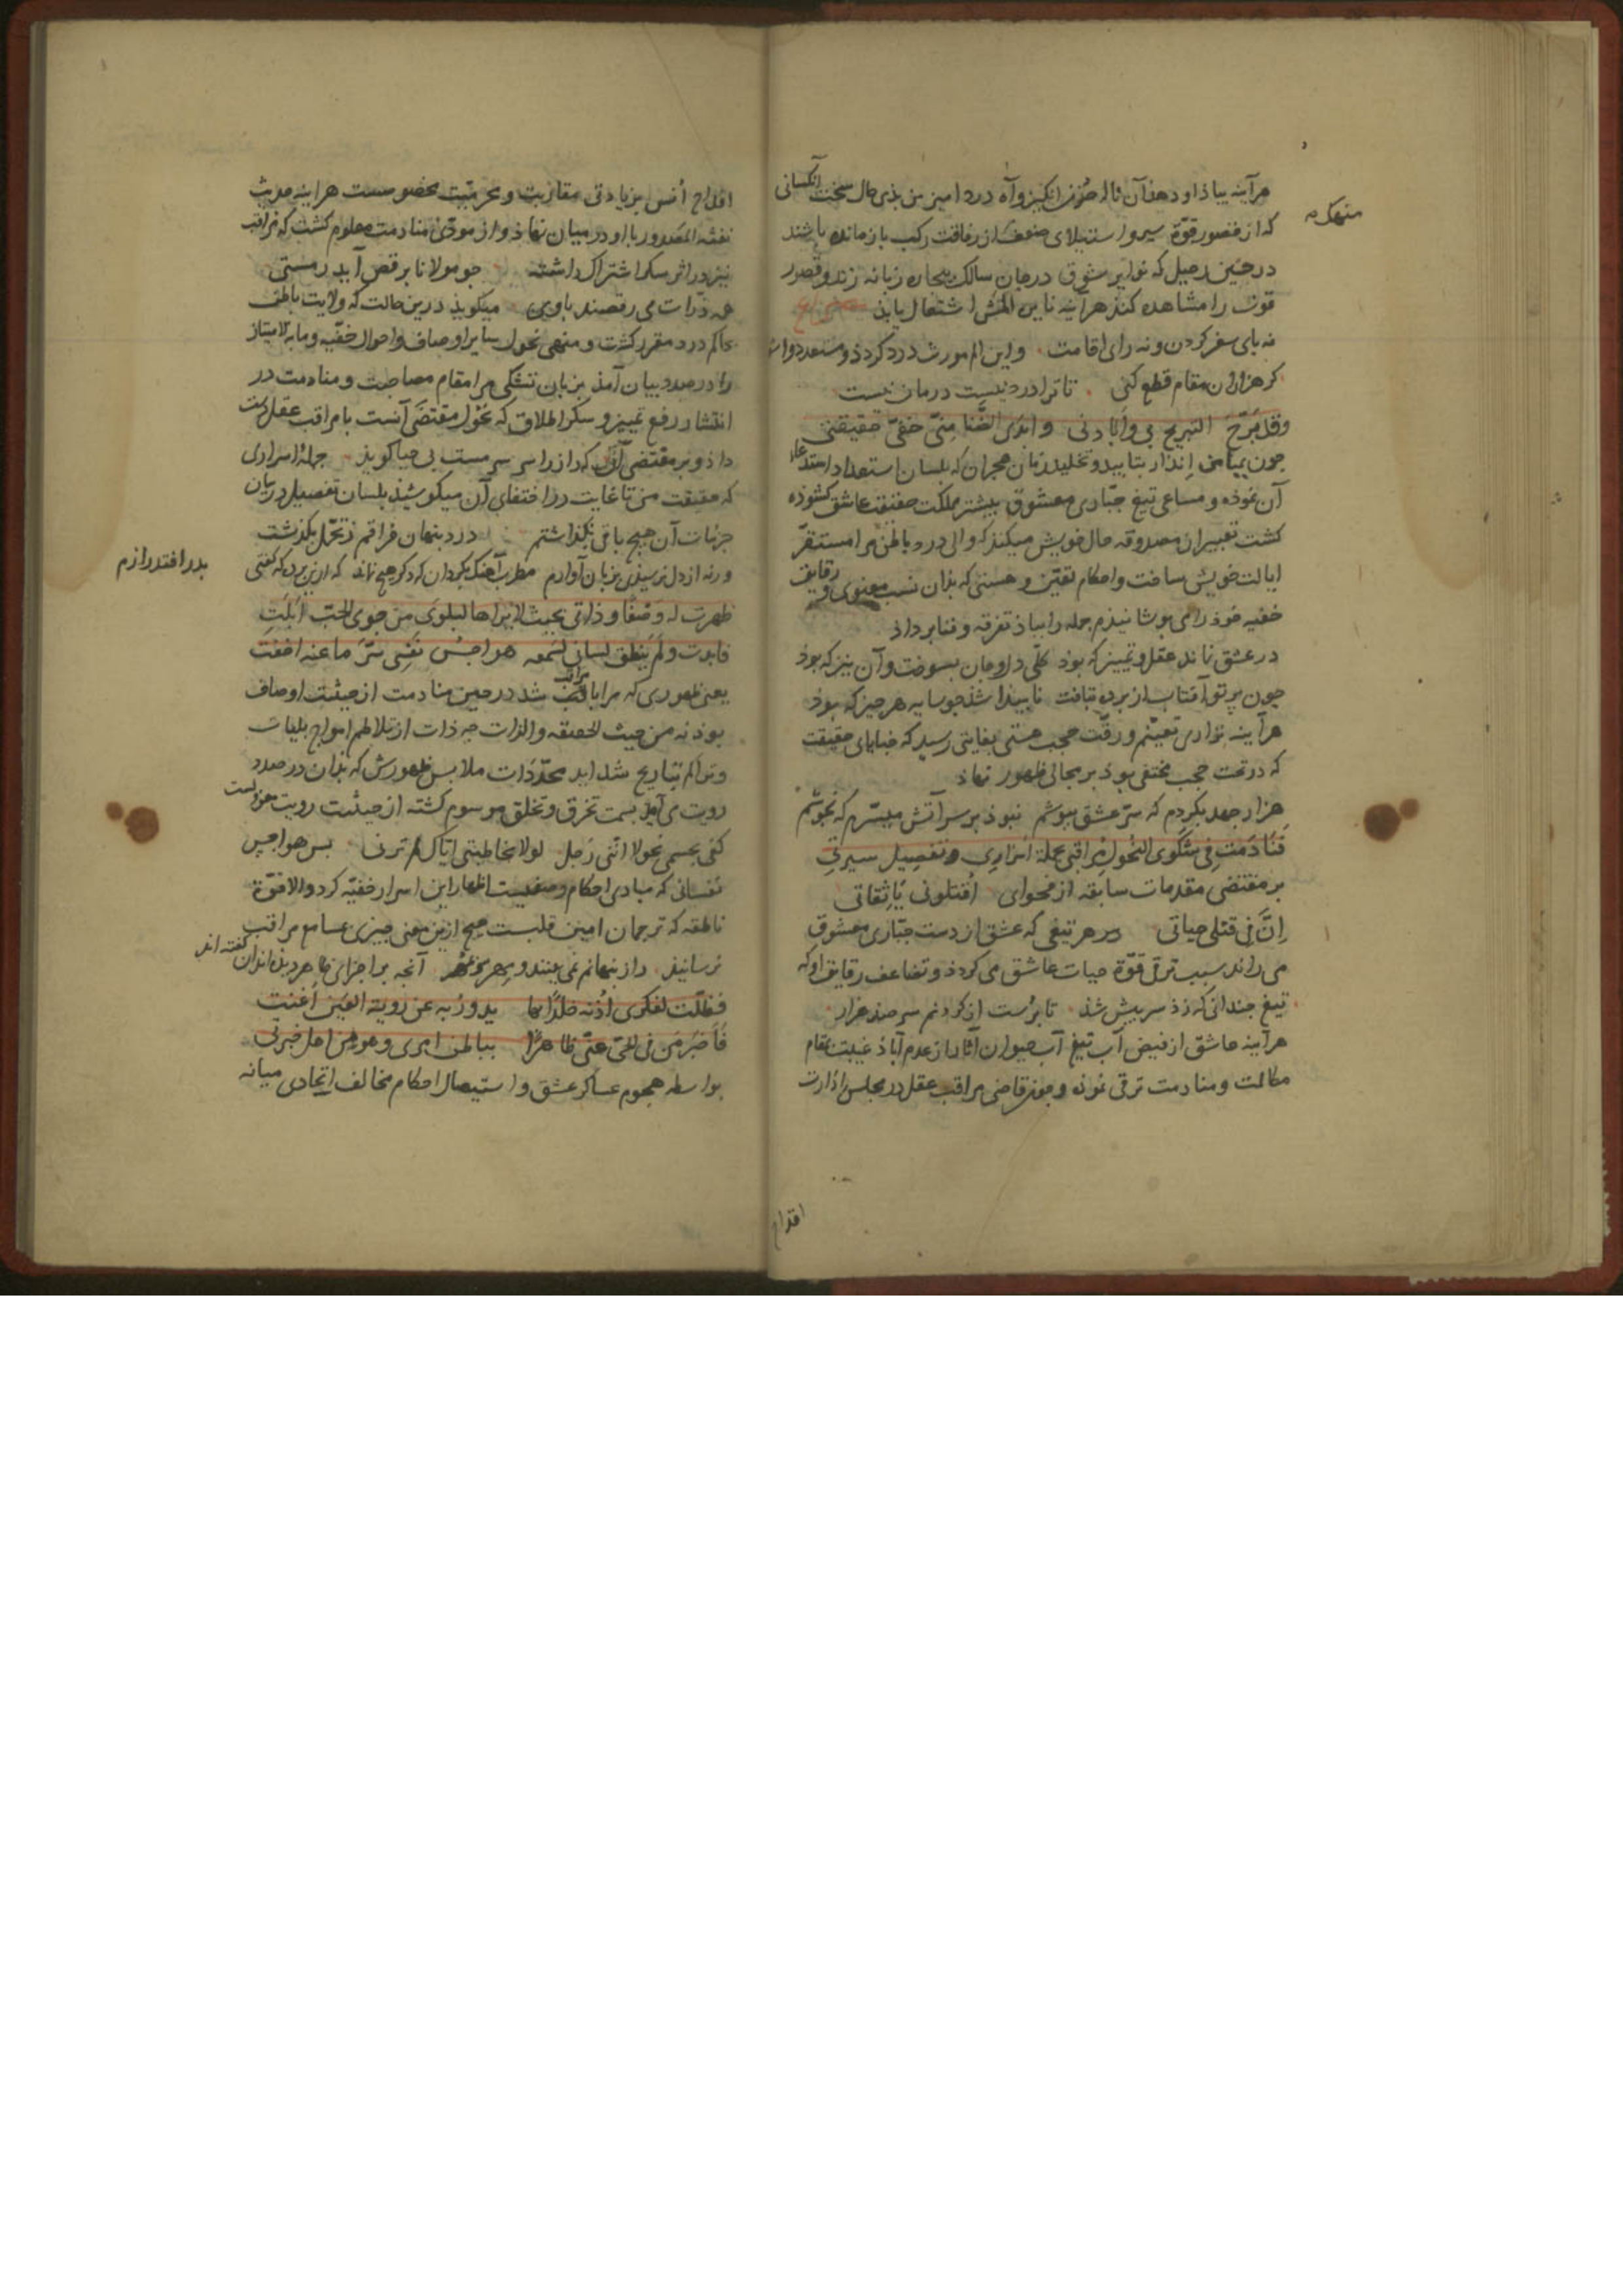 هرآینه بیاذ او دهذ آن ناله حزن انکیز و آه درد امیز من بذی حال سخت آنکسانی
که از قصور قوّة سیر و استیلای ضعف از رفاقت رکب بازمانده باشند
در حین رحیل که نوایر شوق در جان سالک بیچاره زبانه زند و قصور
قوت را مشاهده کند هرآینه نایره المش اشتعال یابذ
نه پای سفر کردن و نه رای اقامت و این الم مورث درد کردذ و مستعد دوا
کر هزاران مقام قطع کنی تا ترا درد نیست درمان نیست
وقد برّح التبریح بی وابادنی وابدی الضنا منّی خفیّ حقیقتی
جون بمیامن انذار بتابید و تخلید زمان هجران که بلسان استعداد استدعاء
آن نموذه و مساعی تیغ جبّاری معشوق بیشتر مملکت حقیقت عاشق کشوذه
کشت تعبیر از مصدوقه حال خویش میکند که والی درد باطن مرا مستقرّ
ایالت خویش ساخت و احکام تعیّن و هستی که بذان نسب معنوی و رقایق
خفیه خوذ را می بوشانیذم جمله را بباذ تفرقه و فنا برداذ
در عشق نماند عقل و تمییز که بوذ کلّی دل و جان بسوخت و آن نیز که بوذ
جون برتو آفتاب از برده بتافت نابیدا شذ جو سایه هر جیز که بوذ
هرآینه تواری تعیّنم و رقّت حجب هستی بغایتی رسید که خبایای حقیقت
که در تحت حجب مختفی بوذ بر مجالی ظهور نهاذ
هزار جهد بکردم که سرّ عشق ببوشم نبوذ بر سر آتش میسّرم که نجوشم
فنادمت فی شکوی النحول مراقبی بجملة اسراری وتفصیل سیرتی
بر مقتضی مقدمات سابقه از فحوای اقتلونی یا ثقاتی
انّ فی قتلی حیاتی هر تیغی که عشق از دست جبّاری معشوق
می راند سبب ترقی قوّة حیات عاشق می کردذ و تضاعف رقایق او که
تیغ جندانکه زذ سر بیش شذ تا برست از کردنم سر صذ هزار
هرآینه عاشق از فیض آب تیغ آب حیوان آثار از عدم آباذ غیبت بمقام
مکالمت و منادمت ترقی نموذه و جون قاضی مراقب عقل در مجلس ادارت
اقداح
اقداح انس بزیادتی مقاربت و محرمیّت مخصوصست هراینه حدیث
نفثة المصدور با او در میان نهاذ و از مودّی منادمت معلوم کشت که مراقب
نیز در اثر سکر اشتراک داشته جو مولانا برقص آید ز مستی
همه ذرّات می رقصند با وی میکویذ درین حالت که ولایت باطن
حاکم درد مقرر کشت و منهی نحول سایر اوصاف و احوال خفیّه و ما به الامتیاز
را در صدد بیان آمذ بزبان تشکی مرا مقام مصاحبت و منادمت در
انتشار رفع تمییز و سکر اطلاق که نحول مقتضی آنست با مراقب عقل دست
داذ و بر مقتضی آنک که راز را سر سرمست بی محابا کویذ جملة اسراری
که حقیقت من تا غایت در اختفای آن میکوشیذ بلسان تفصیل در بیان
جزئیات آن هیچ باقی نکذاشتم درد بنهان فراقم ز تحمّل بکذشت
ورنه از دل نرسیذی بزبان آوازم مطرب آهنک بکردان که دکر هیچ نماند که ازین برده که کفتی
بدر افتد رازم
ظهرت له وصفا وذاتی بحیث لا یراها لبلوی من جوی الحبّ ابلت
فابدت ولم ینطق لسانی لسمعه هواجس نفسی سرّ ما عنه اخفت
یعنی ظهوری که مرا با مراقب شد در حین منادمت از حیثیت اوصاف
بوذ نه من حیث الحقیقه والذات جه ذات از تلاطم امواج بلیات
و تراکم تباریح شداید
رویت می آید بسمت تخرق و تخلق موسوم کشته از حیثیت رویت معزولست
کفی بجسمی نحولا انّنی رجل لولا مخاطبتی ایّاک لم ترنی بس هواجس
نفسانی که مبادی احکام وصفیست اظهار این اسرار خفیّه کرد والا قوّة
ناطقه که ترجمان امین قلبست هیچ ازین معنی جیزی بمسامع مراقب
نرسانیذ راز نهانم نمی بینند آنجه بر اجزای ظاهر دیذه اند آن کفته اند
فظلّت لفکری اذنه خلدا بها یدور به عن رویة العین اغنت
فاخبر من فی الحیّ عنّی ظاهرا بباطن امری وهو من اهل خبرتی
بواسطه هجوم عساکر عشق و استیصال احکام مخالف اتحادی میانه